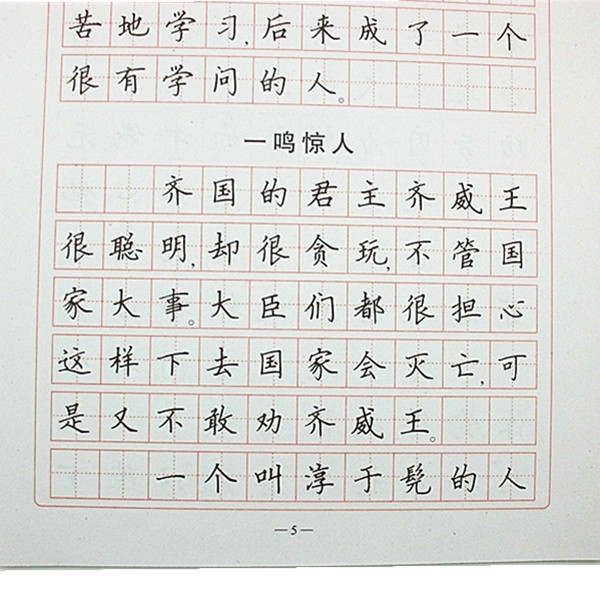 苦地学习,后来成了一个
很有学问的人。
一鸣惊人
齐国的君主齐威王
很聪明,却很贪玩,不管国
家大事。大臣们都很担心
这样下去国家会灭亡,可
是又不敢劝齐威王。
一个叫淳于髡的人
—5—